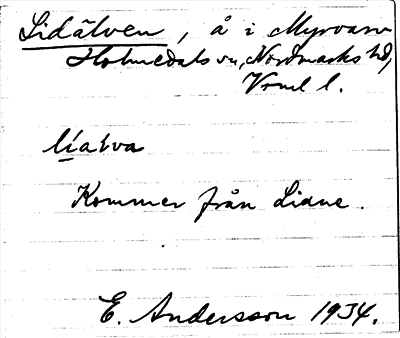 Lidälven, å i Myrvarn
Holmedals sn, Nordmarks hd,
Vrml l.
Kommer från Lidne.
E. Andersson 1934.